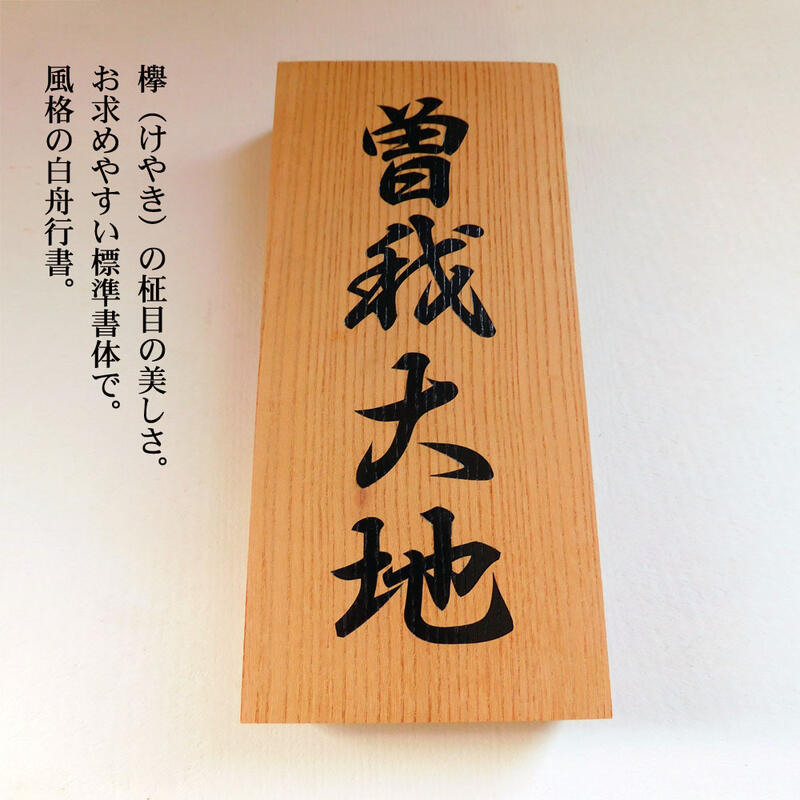 欅（けやき）の柾目の美しさ。
お求めやすい標準書体で。
風格の白舟行書。
曽我大地